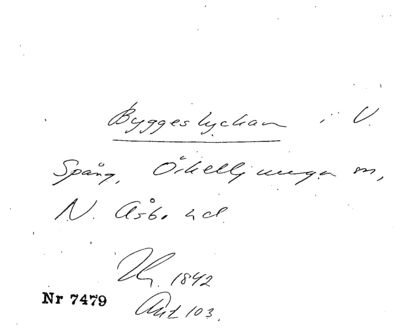 Byggeslyckan i V.
Spång, Örkelljunga sn,
N. Åsbo hd.
1842
Nr 7479
Akt 103.